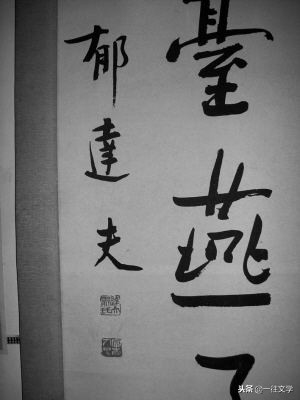 臺燕
郁達夫
头条@一往文学